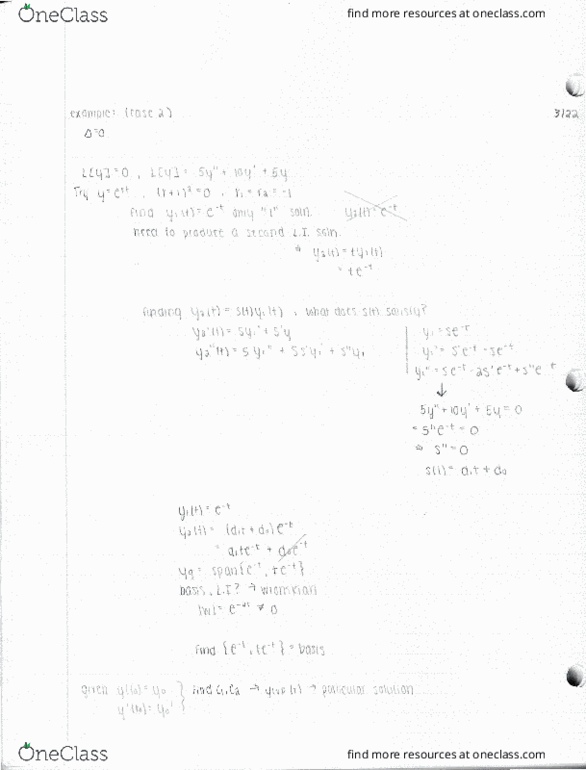 OneClass
find more resources at oneclass.com
example: (case 2)
3/22
Δ=0
L[y]=0 , L[y] = 5y" + 10y' + 5y
Try y=e^rt , (r+1)²=0 , r₁=r₂=-1
Find y₁(t)=e^-t only "1" soln. y₂(t)=e^-t
need to produce a second L.I. soln.
⇒ y₂(t)=ty₁(t)
= te^-t
finding y₂(t) = s(t)y₁(t) , what does s(t) satisfy?
y₂'(t) = sy₁' + s'y
y₂"(t) = sy₁" + 2s'y₁' + s"y₁
y₁ = se^-t
y₁' = s'e^-t - se^-t
y₁" = se^-t - 2s'e^-t + s"e^-t
↓
5y" + 10y' + 5y = 0
= s"e^-t = 0
⇒ s" = 0
s(t) = d₁t + d₀
y₁(t) = e^-t
y₂(t) = (d₁t + d₀)e^-t
= d₁te^-t + d₀e^-t
yg = span{e^-t , te^-t}
basis, L.I? → wronskian
|w| = e^-2t ≠ 0
find {e^-t, te^-t} = basis
given y(t₀) = y₀ } find C₁C₂ → yivp(t) → particular solution
y'(t₀) = y₀'
OneClass
find more resources at oneclass.com